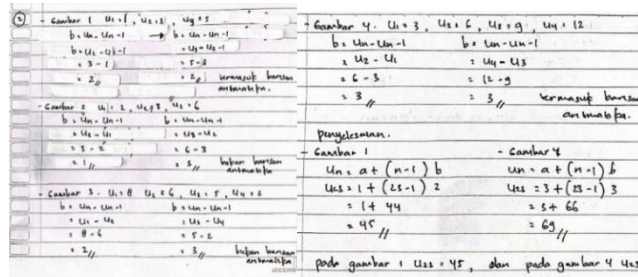 2) - Gambar 1 U1 = 1, U2 = 3, U3 = 5
b = Un - Un-1 → b = Un - Un-1
b = U2 - U1 = U3 - U2
= 3 - 1 = 5 - 3
= 2 // = 2 // termasuk barisan
aritmatika.
- Gambar 2 U1 = 2, U2 = 3, U3 = 6
b = Un - Un-1 b = Un - Un-1
= U2 - U1 = U3 - U2
= 3 - 2 = 6 - 3
= 1 // = 3 // bukan barisan
aritmatika
- Gambar 3. U1 = 8 U2 = 6, U3 = 5, U4 = 2
b = Un - Un-1 b = Un - Un-1
= U1 - U2 = U3 - U4
= 8 - 6 = 5 - 2
= 2 // = 3 // bukan barisan
aritmatika
- Gambar 4. U1 = 3, U2 = 6, U3 = 9, U4 = 12
b = Un - Un-1 b = Un - Un-1
= U2 - U1 = U4 - U3
= 6 - 3 = 12 - 9
= 3 // = 3 // termasuk barisan
aritmatika.
penyelesaian.
- Gambar 1 - Gambar 4
Un = a + (n-1) b Un = a + (n-1) b
U23 = 1 + (23-1) 2 U23 = 3 + (23-1) 3
= 1 + 44 = 3 + 66
= 45 // = 69 //
pada gambar 1 U23 = 45, dan pada gambar 4 U23